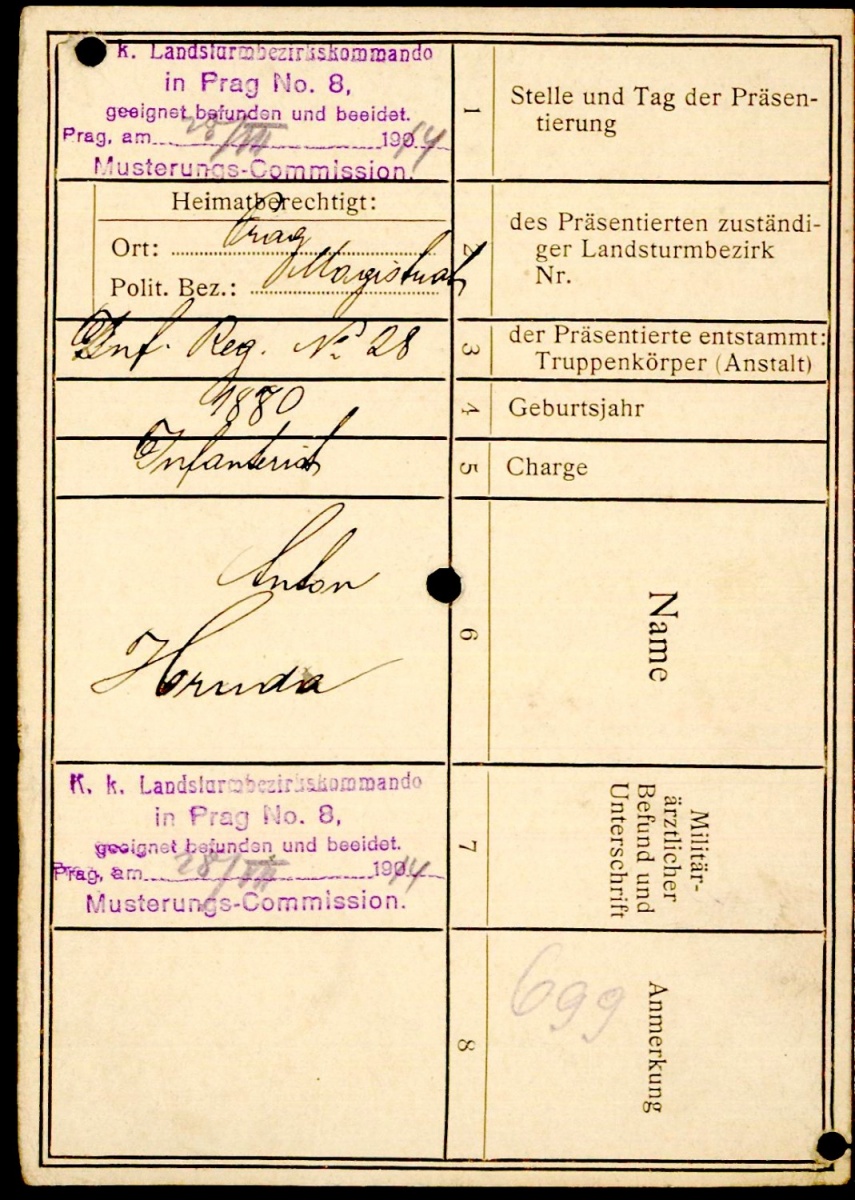 K. k. Landsturmbezirkskommando
in Prag No. 8,
geeignet befunden und beeidet.
Prag, am 28/VII 1914
Musterungs-Commission.
1
Stelle und Tag der Präsen-
tierung
Heimatberechtigt:
Ort: Prag
Polit. Bez.: Magistrat
2
des Präsentierten zuständi-
ger Landsturmbezirk
Nr.
Inf. Reg. No 28
3
der Präsentierte entstammt:
Truppenkörper (Anstalt)
1880
4
Geburtsjahr
Infanterist
5
Charge
Anton
Hornda
6
Name
K. k. Landsturmbezirkskommando
in Prag No. 8,
geeignet befunden und beeidet.
Prag, am 28/VII 1914
Musterungs-Commission.
7
Militär-
ärztlicher
Befund und
Unterschrift
8
Anmerkung
699